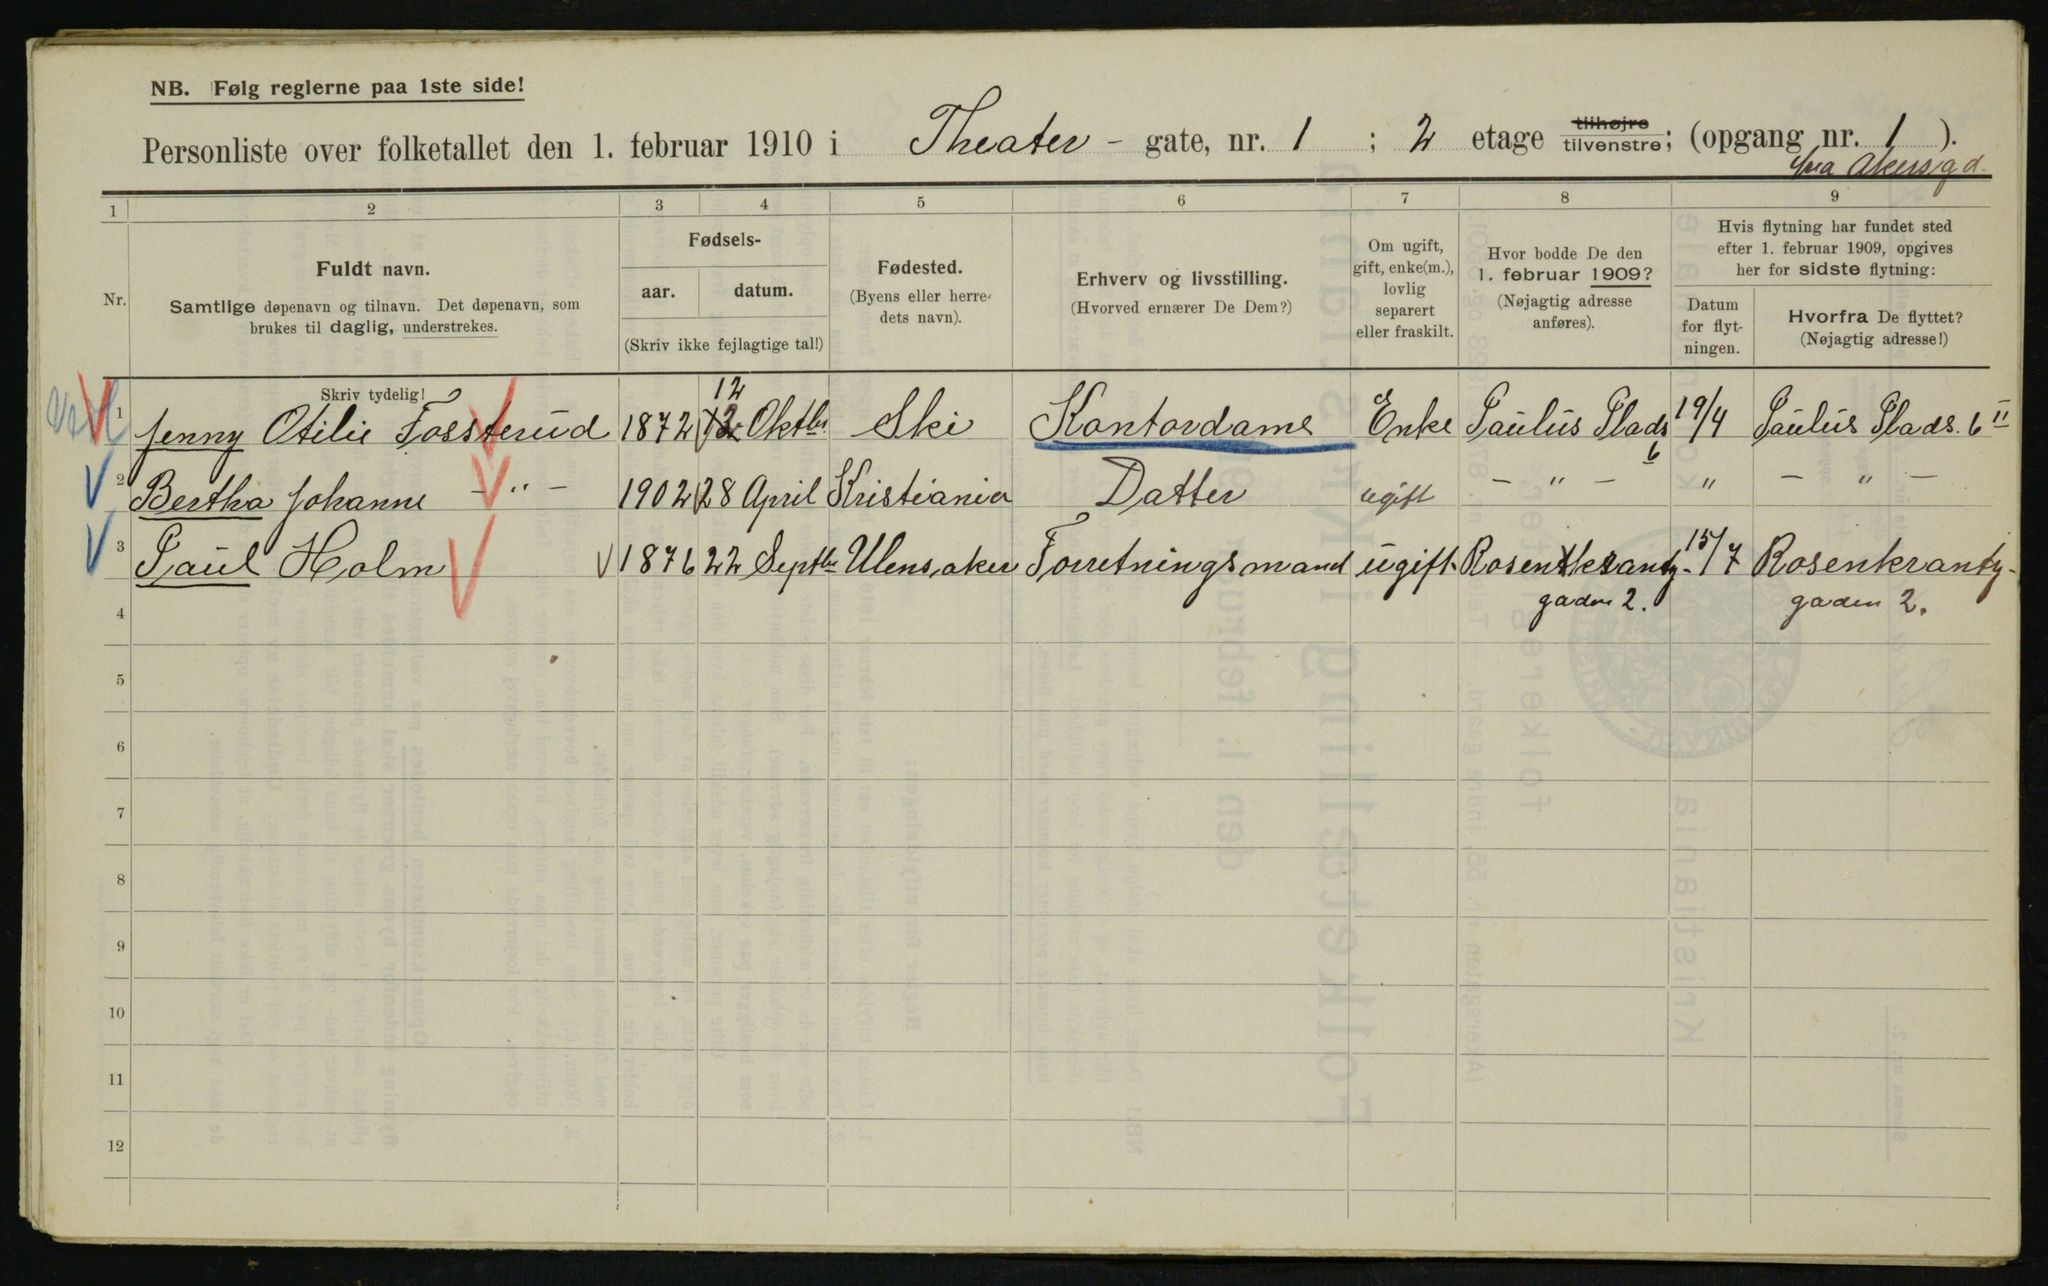 NB. Følg reglerne paa 1ste side!
Personliste over folketallet den 1. februar 1910 i Theater - gate, nr. 1 ; 2 etage tilhøjre tilvenstre; (opgang nr. 1 ).
fra Akersgd.
1 2 3 4 5 6 7 8 9
Nr.
Fuldt navn.
Samtlige døpenavn og tilnavn. Det døpenavn, som
brukes til daglig, understrekes.
Fødsels-
aar. datum.
(Skriv ikke fejlagtige tal!)
Fødested.
(Byens eller herre-
dets navn).
Erhverv og livsstilling.
(Hvorved ernærer De Dem?)
Om ugift,
gift, enke(m.),
lovlig
separert
eller fraskilt.
Hvor bodde De den
1. februar 1909?
(Nøjagtig adresse
anføres).
Hvis flytning har fundet sted
efter 1. februar 1909, opgives
her for sidste flytning:
Datum
for flyt-
ningen.
Hvorfra De flyttet?
(Nøjagtig adresse!)
Skriv tydelig!
12
1 Jenny Otilie Fossterud 1872 12 Oktbr Ski Kontordame Enke Paulus Plads 6 19/4 Paulus Plads. 6 II
2 Bertha Johanne - " - 1902 28 April Kristiania Datter ugift - " - " - " -
3 Paul Holm 1876 22 Septbr Ulensaker Forretningsmand ugift Rosenkrantz- 15/7 Rosenkrantz-
4 gaden 2. gaden 2.
5
6
7
8
9
10
11
12